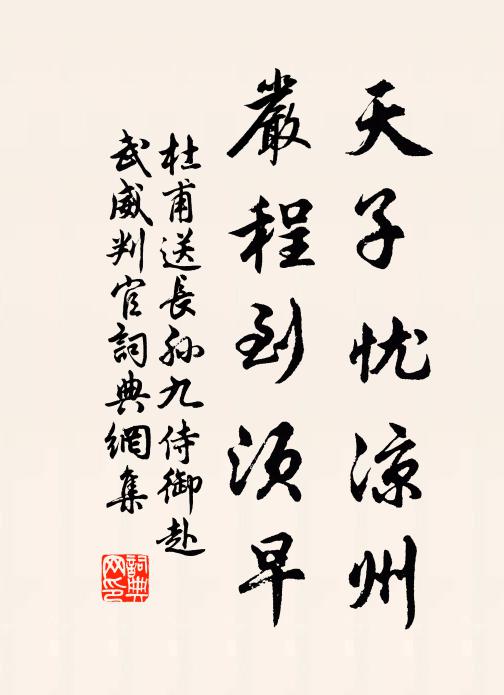 天子忧凉州
嚴程到須早
杜甫送長孫九侍御赴
武威判官詞典網集
詞典网印